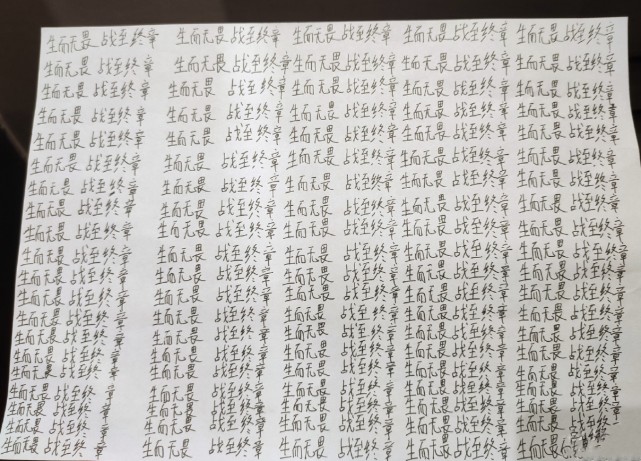 生而无畏 战至终章 生而无畏 战至终章 生而无畏 战至终章 生而无畏 战至终章 生而无畏 战至终章
生而无畏 战至终章 生而无畏 战至终章 生而无畏 战至终章 生而无畏 战至终章 生而无畏 战至终章
生而无畏 战至终章 生而无畏 战至终章 生而无畏 战至终章 生而无畏 战至终章 生而无畏 战至终章
生而无畏 战至终章 生而无畏 战至终章 生而无畏 战至终章 生而无畏 战至终章 生而无畏 战至终章
生而无畏 战至终章 生而无畏 战至终章 生而无畏 战至终章 生而无畏 战至终章 生而无畏 战至终章
生而无畏 战至终章 生而无畏 战至终章 生而无畏 战至终章 生而无畏 战至终章 生而无畏 战至终章
生而无畏 战至终章 生而无畏 战至终章 生而无畏 战至终章 生而无畏 战至终章 生而无畏 战至终章
生而无畏 战至终章 生而无畏 战至终章 生而无畏 战至终章 生而无畏 战至终章 生而无畏 战至终章
生而无畏 战至终章 生而无畏 战至终章 生而无畏 战至终章 生而无畏 战至终章 生而无畏 战至终章
生而无畏 战至终章 生而无畏 战至终章 生而无畏 战至终章 生而无畏 战至终章 生而无畏 战至终章
生而无畏 战至终章 生而无畏 战至终章 生而无畏 战至终章 生而无畏 战至终章 生而无畏 战至终章
生而无畏 战至终章 生而无畏 战至终章 生而无畏 战至终章 生而无畏 战至终章 生而无畏 战至终章
生而无畏 战至终章 生而无畏 战至终章 生而无畏 战至终章 生而无畏 战至终章 生而无畏 战至终章
生而无畏 战至终章 生而无畏 战至终章 生而无畏 战至终章 生而无畏 战至终章 生而无畏 战至终章
生而无畏 战至终章 生而无畏 战至终章 生而无畏 战至终章 生而无畏 战至终章 生而无畏 战至终章
生而无畏 战至终章 生而无畏 战至终章 生而无畏 战至终章 生而无畏 战至终章 生而无畏 战至终章
生而无畏 战至终章 生而无畏 战至终章 生而无畏 战至终章 生而无畏 战至终章 生而无畏 战至终章
生而无畏 战至终章 生而无畏 战至终章 生而无畏 战至终章 生而无畏 战至终章 生而无畏 战至终章
生而无畏 战至终章 生而无畏 战至终章 生而无畏 战至终章 生而无畏 战至终章 生而无畏 战至终章
生而无畏 战至终章 生而无畏 战至终章 生而无畏 战至终章 生而无畏 战至终章 生而无畏